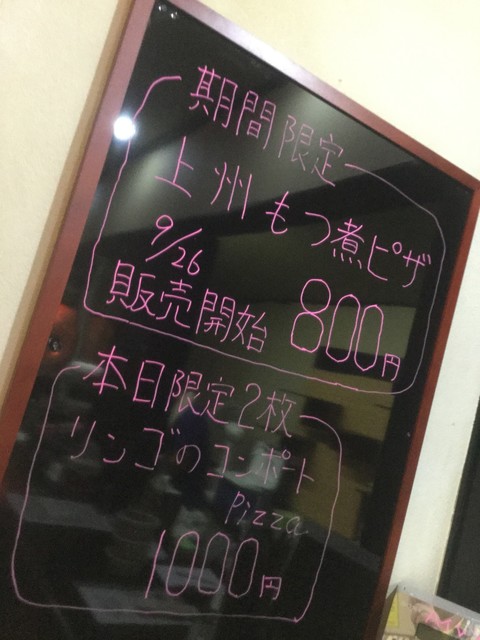 期間限定
上州もつ煮ピザ
9/26
販売開始 800円
本日限定2枚
リンゴのコンポート
Pizza
1000円